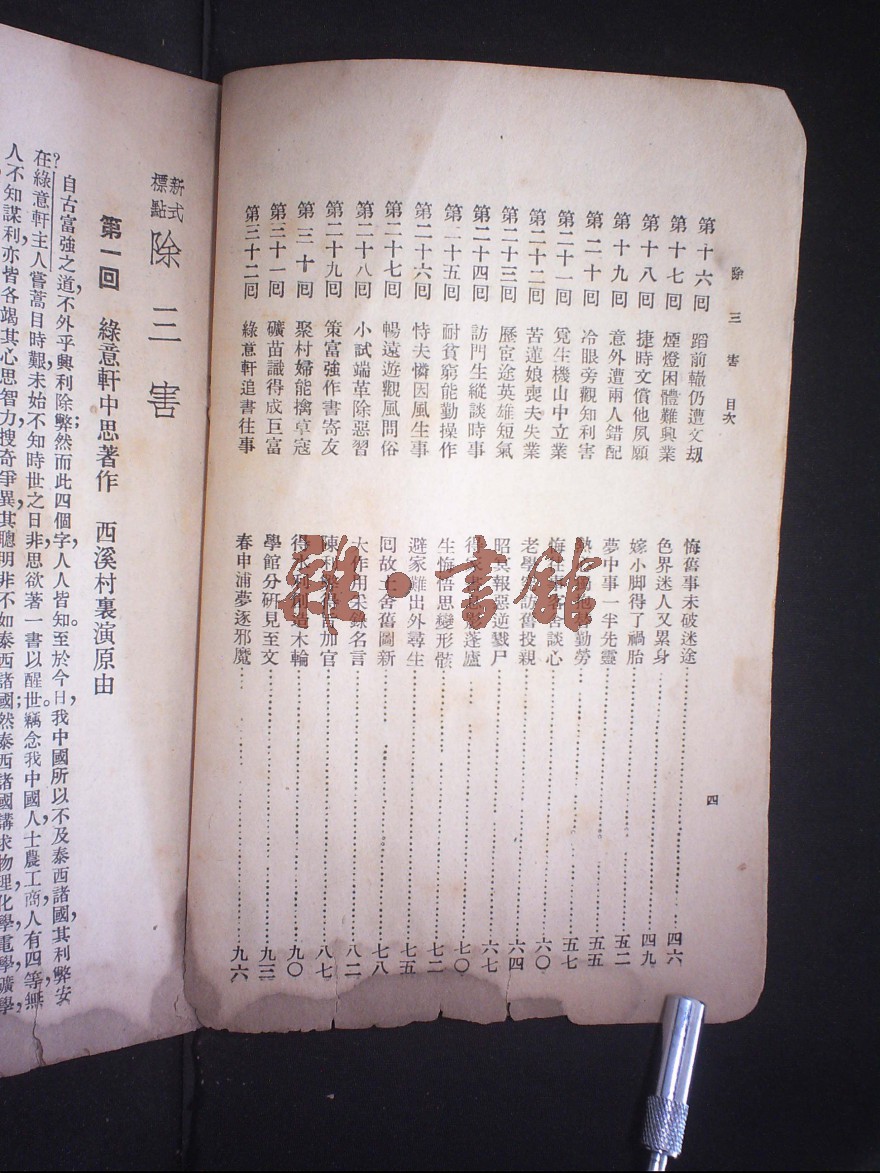 除三害 目次
四
第十六回 蹈前轍仍遭文刼 悔舊事未破迷途 四六
第十七回 煙燈困體難興業 色界迷人又累身 四九
第十八回 捷時文償他夙願 嫁小脚得了禍胎 五二
第十九回 意外遭兩人錯配 夢中事一半先靈 五五
第二十回 冷眼旁觀知利害 勤勞 五七
第二十一回 覓生機山中立業 談心 六〇
第二十二回 苦蓮娘喪夫失業 老學究訪舊投親 六四
第二十三回 歷宦途英雄短氣 昭冥報惡逆戮尸 六七
第二十四回 訪門生縱談時事 蓬廬 七〇
第二十五回 耐貧窮能勤操作 生悔悟思變形骸 七二
第二十六回 恃夫憐因風生事 避家難出外尋生 七五
第二十七回 暢遠遊觀風問俗 回故土舍舊圖新 七八
第二十八回 小試端革除惡習 大作用采錄名言 八二
第二十九回 策富強作書寄友 陳利 加官 八七
第三十回 聚村婦能擒草寇 得水利創造木輪 九〇
第三十一回 礦苗識得成巨富 學館分研見至文 九三
第三十二回 綠意軒追書往事 春申浦夢逐邪魔 九六
新式標點 除三害
第一回 綠意軒中思著作 西溪村裏演原由
自古富強之道，不外乎興利除弊；然而此四個字，人人皆知。至於今日，我中國所以不及泰西諸國，其利弊安
在？綠意軒主人嘗蒿目時艱，未始不知時世之日非，思欲著一書以醒世。竊念我中國人士農工商，人有四等，無
人不知謀利，亦皆各竭其心思智力，搜奇爭異，其聰明非不如泰西諸國；然泰西諸國講求物理化學，電學，礦學，
雜·書館